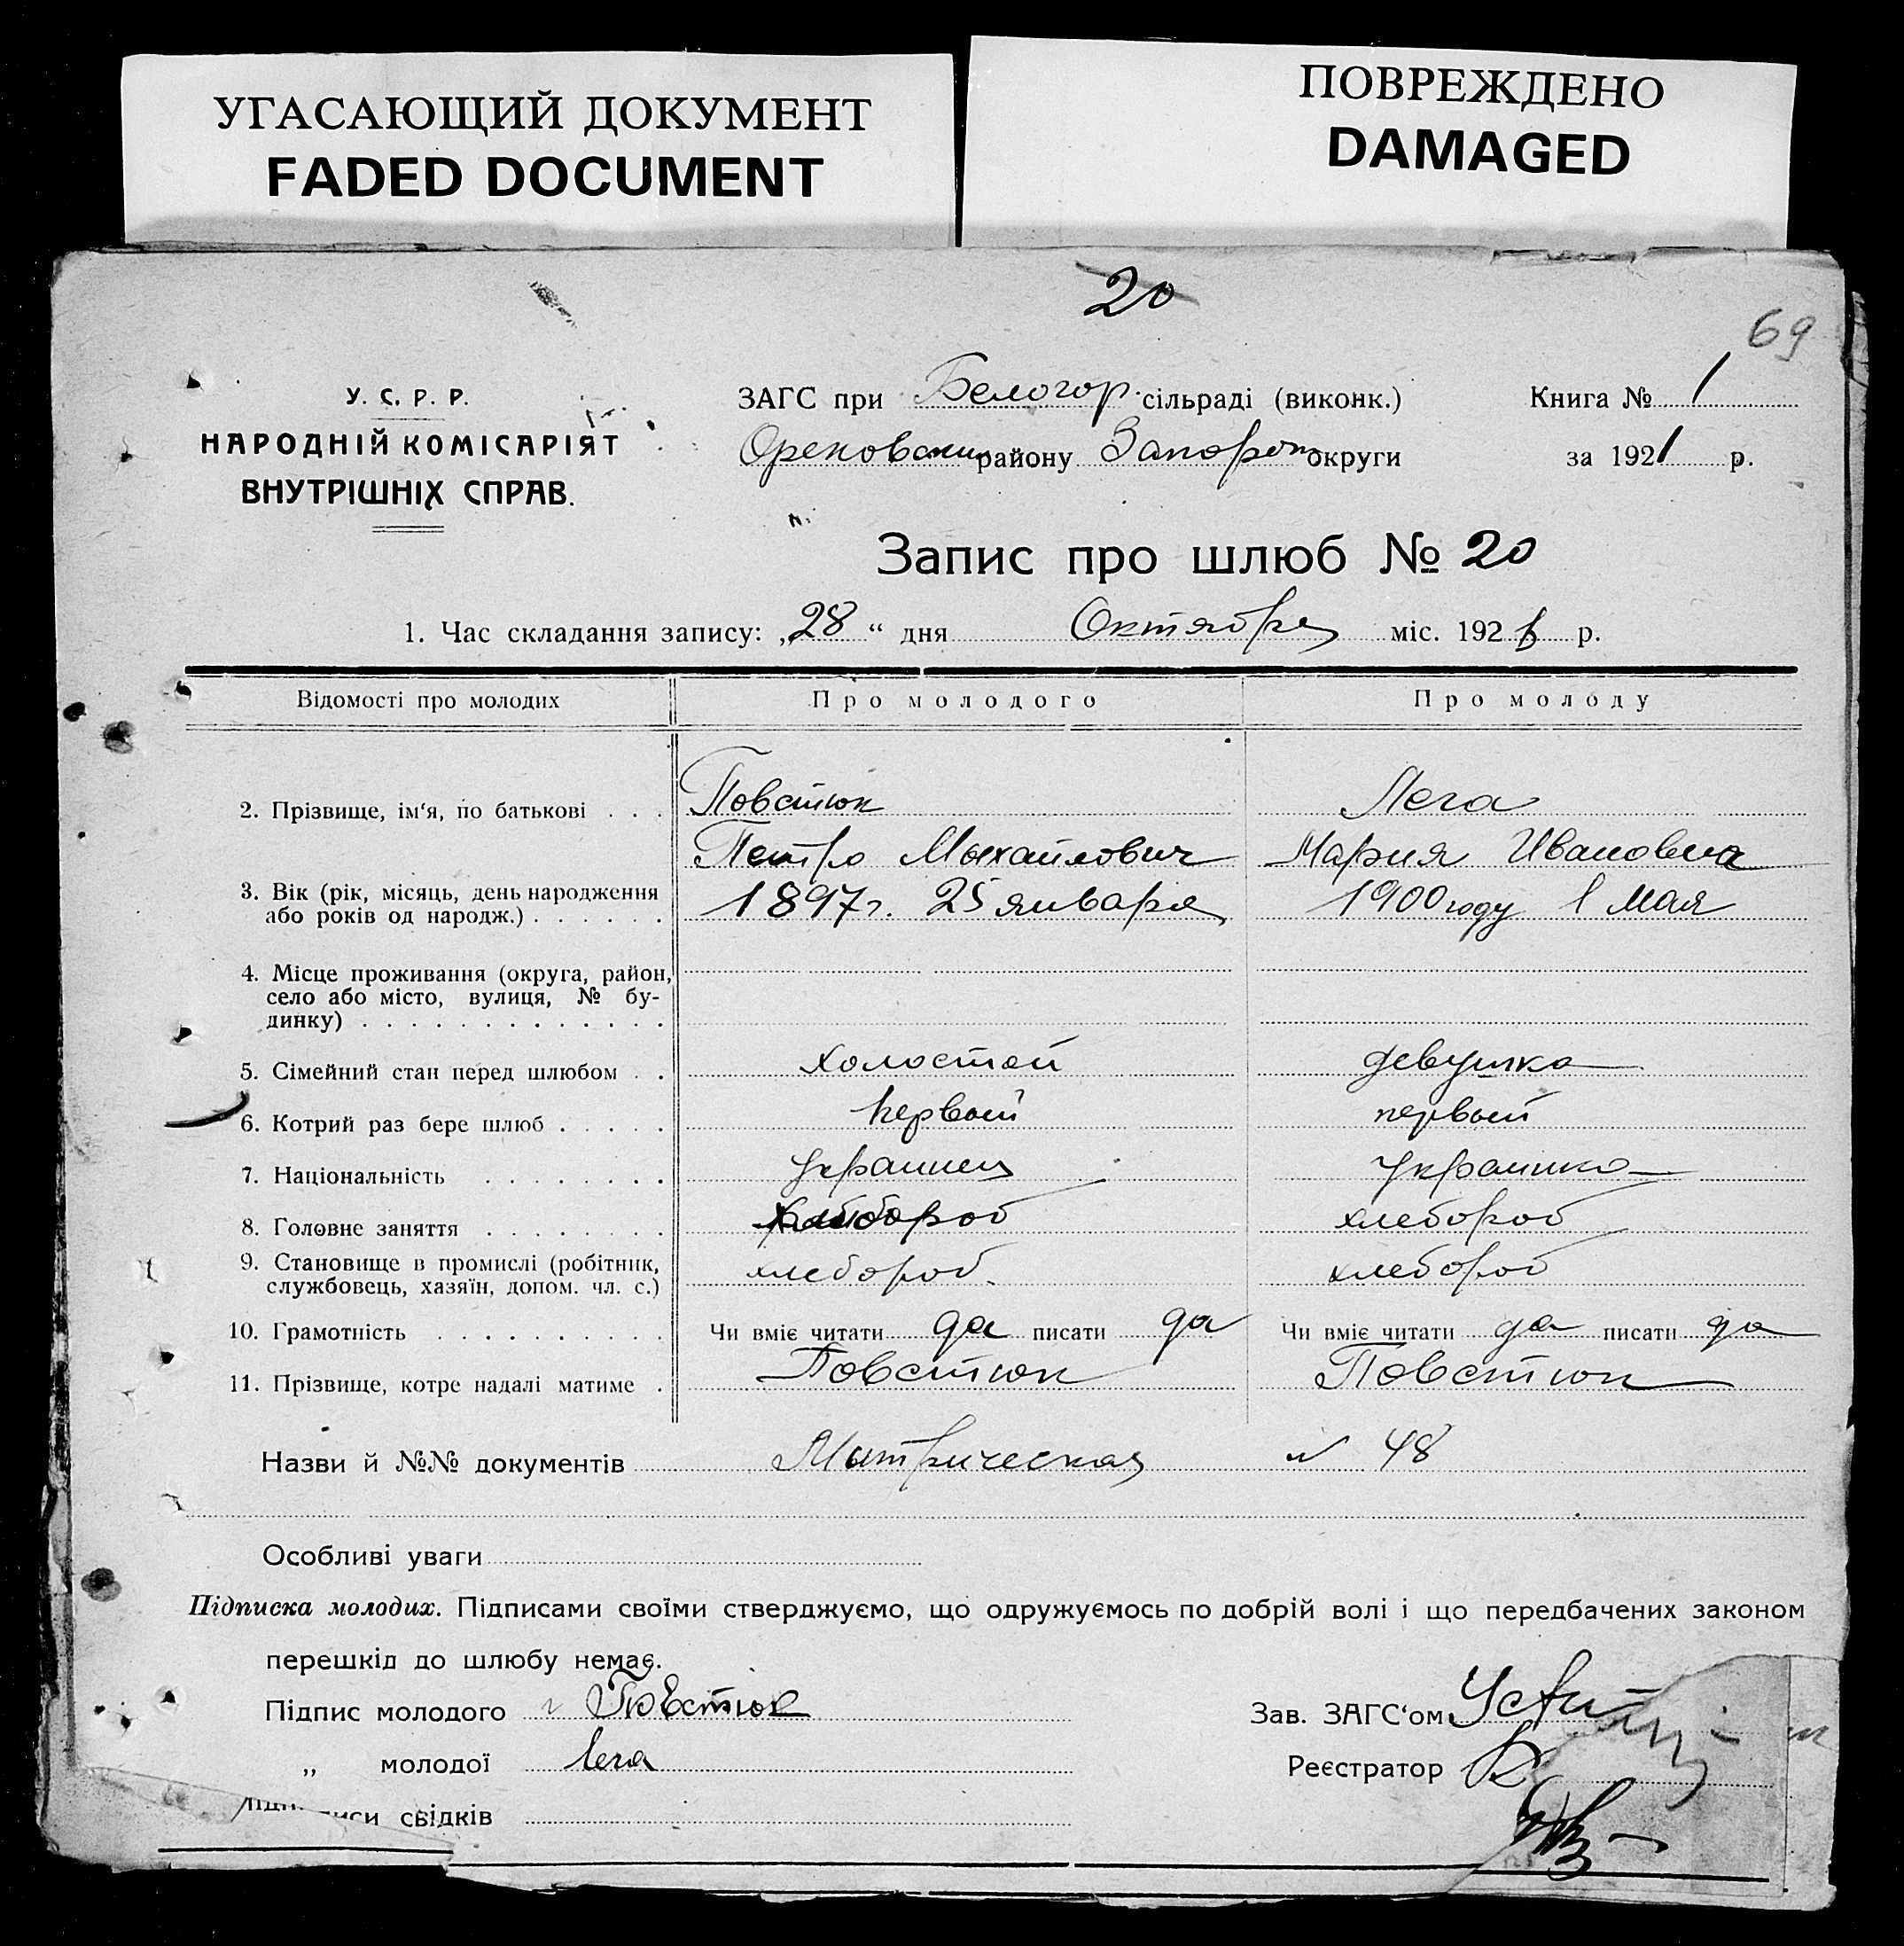 УГАСАЮЩИЙ ДОКУМЕНТ
FADED DOCUMENT
ПОВРЕЖДЕНО
DAMAGED
20
69
У. С. Р. Р.
НАРОДНІЙ КОМІСАРІЯТ
ВНУТРІШНІХ СПРАВ.
ЗАГС при Белогор. сільраді (виконк.)
Ореховским району Запорож округи
Книга № 1
за 1921 р.
Запис про шлюб № 20
1. Час складання запису: „28“ дня Октября міс. 1921 р.
Відомості про молодих Про молодого Про молоду
2. Прізвище, ім'я, по батькові . . . Повстюк Лега
Петро Мыхайлович Мария Ивановна
3. Вік (рік, місяць, день народження
або років од народж.) . . . . . . 1897г. 25 января 1900 году 1 мая
4. Місце проживання (округа, район,
село або місто, вулиця, № бу-
динку) . . . . . . . . . . . . .
5. Сімейний стан перед шлюбом . . холостой девушка
6. Котрий раз бере шлюб . . . . . первый первый
7. Національність . . . . . . . . украинец украинка
8. Головне заняття . . . . . . . . хлебороб хлебороб
9. Становище в промислі (робітник,
службовець, хазяїн, допом. чл. с.) хлебороб. хлебороб
10. Грамотність . . . . . . . . . . Чи вміє читати да писати да Чи вміє читати да писати да
11. Прізвище, котре надалі матиме . Повстюк Повстюк
Назви й №№ документів Мытрическая № 48
Особливі уваги
Підписка молодих. Підписами своїми стверджуємо, що одружуємось по добрій волі і що передбачених законом
перешкід до шлюбу немає.
Підпис молодого Повстюк
„ молодої Лега
свідків
Зав. ЗАГС'ом
Реєстратор